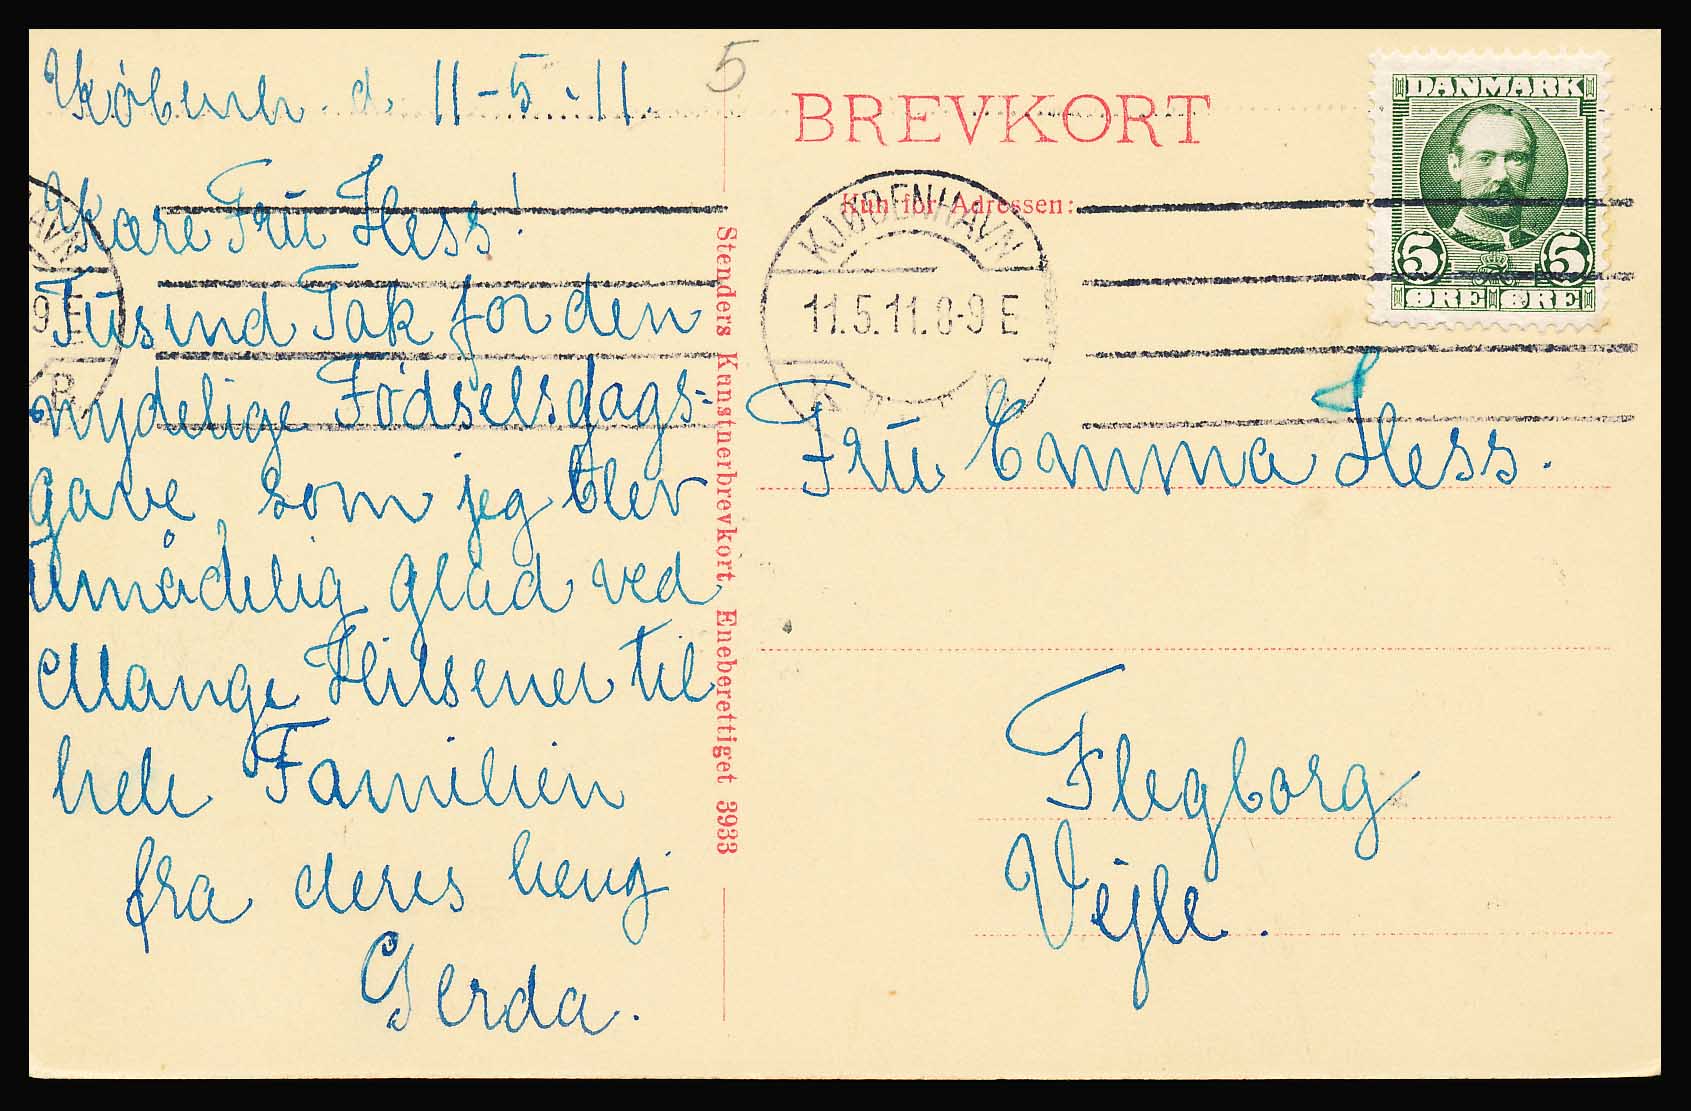 Københ. d. 11-5-11.
5
Kære Frū Hess!
Tūsind Tak for den
nydelige Fødselsdags-
gave, som jeg blev
ūmådelig glad ved
Mange Hilsener til
hele Familien
fra deres heng.
Gerda.
Stenders Kunstnerbrevkort Eneberettiget 3933
BREVKORT
Kun for Adressen:
DANMARK
5 5
ØRE ØRE
KJØBENHAVN
11.5.11.8-9 E
K
Frū Emma Hess.
Flegborg
Vejle.
AVN
9 E